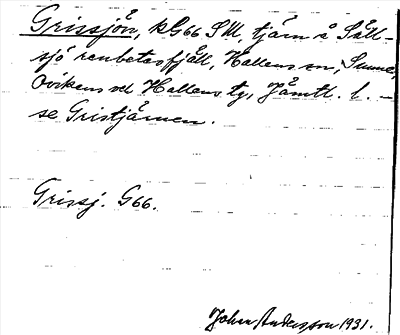 Grissjön, kG66 SV, tjärn å Såll-
sjö renbetesfjäll, Hallens sn, Sunne,
Ovikens och Hallens tg, Jämtl. l. –
se Gristjärnen.
Grissj. G66.
Johan Andersson 1931.